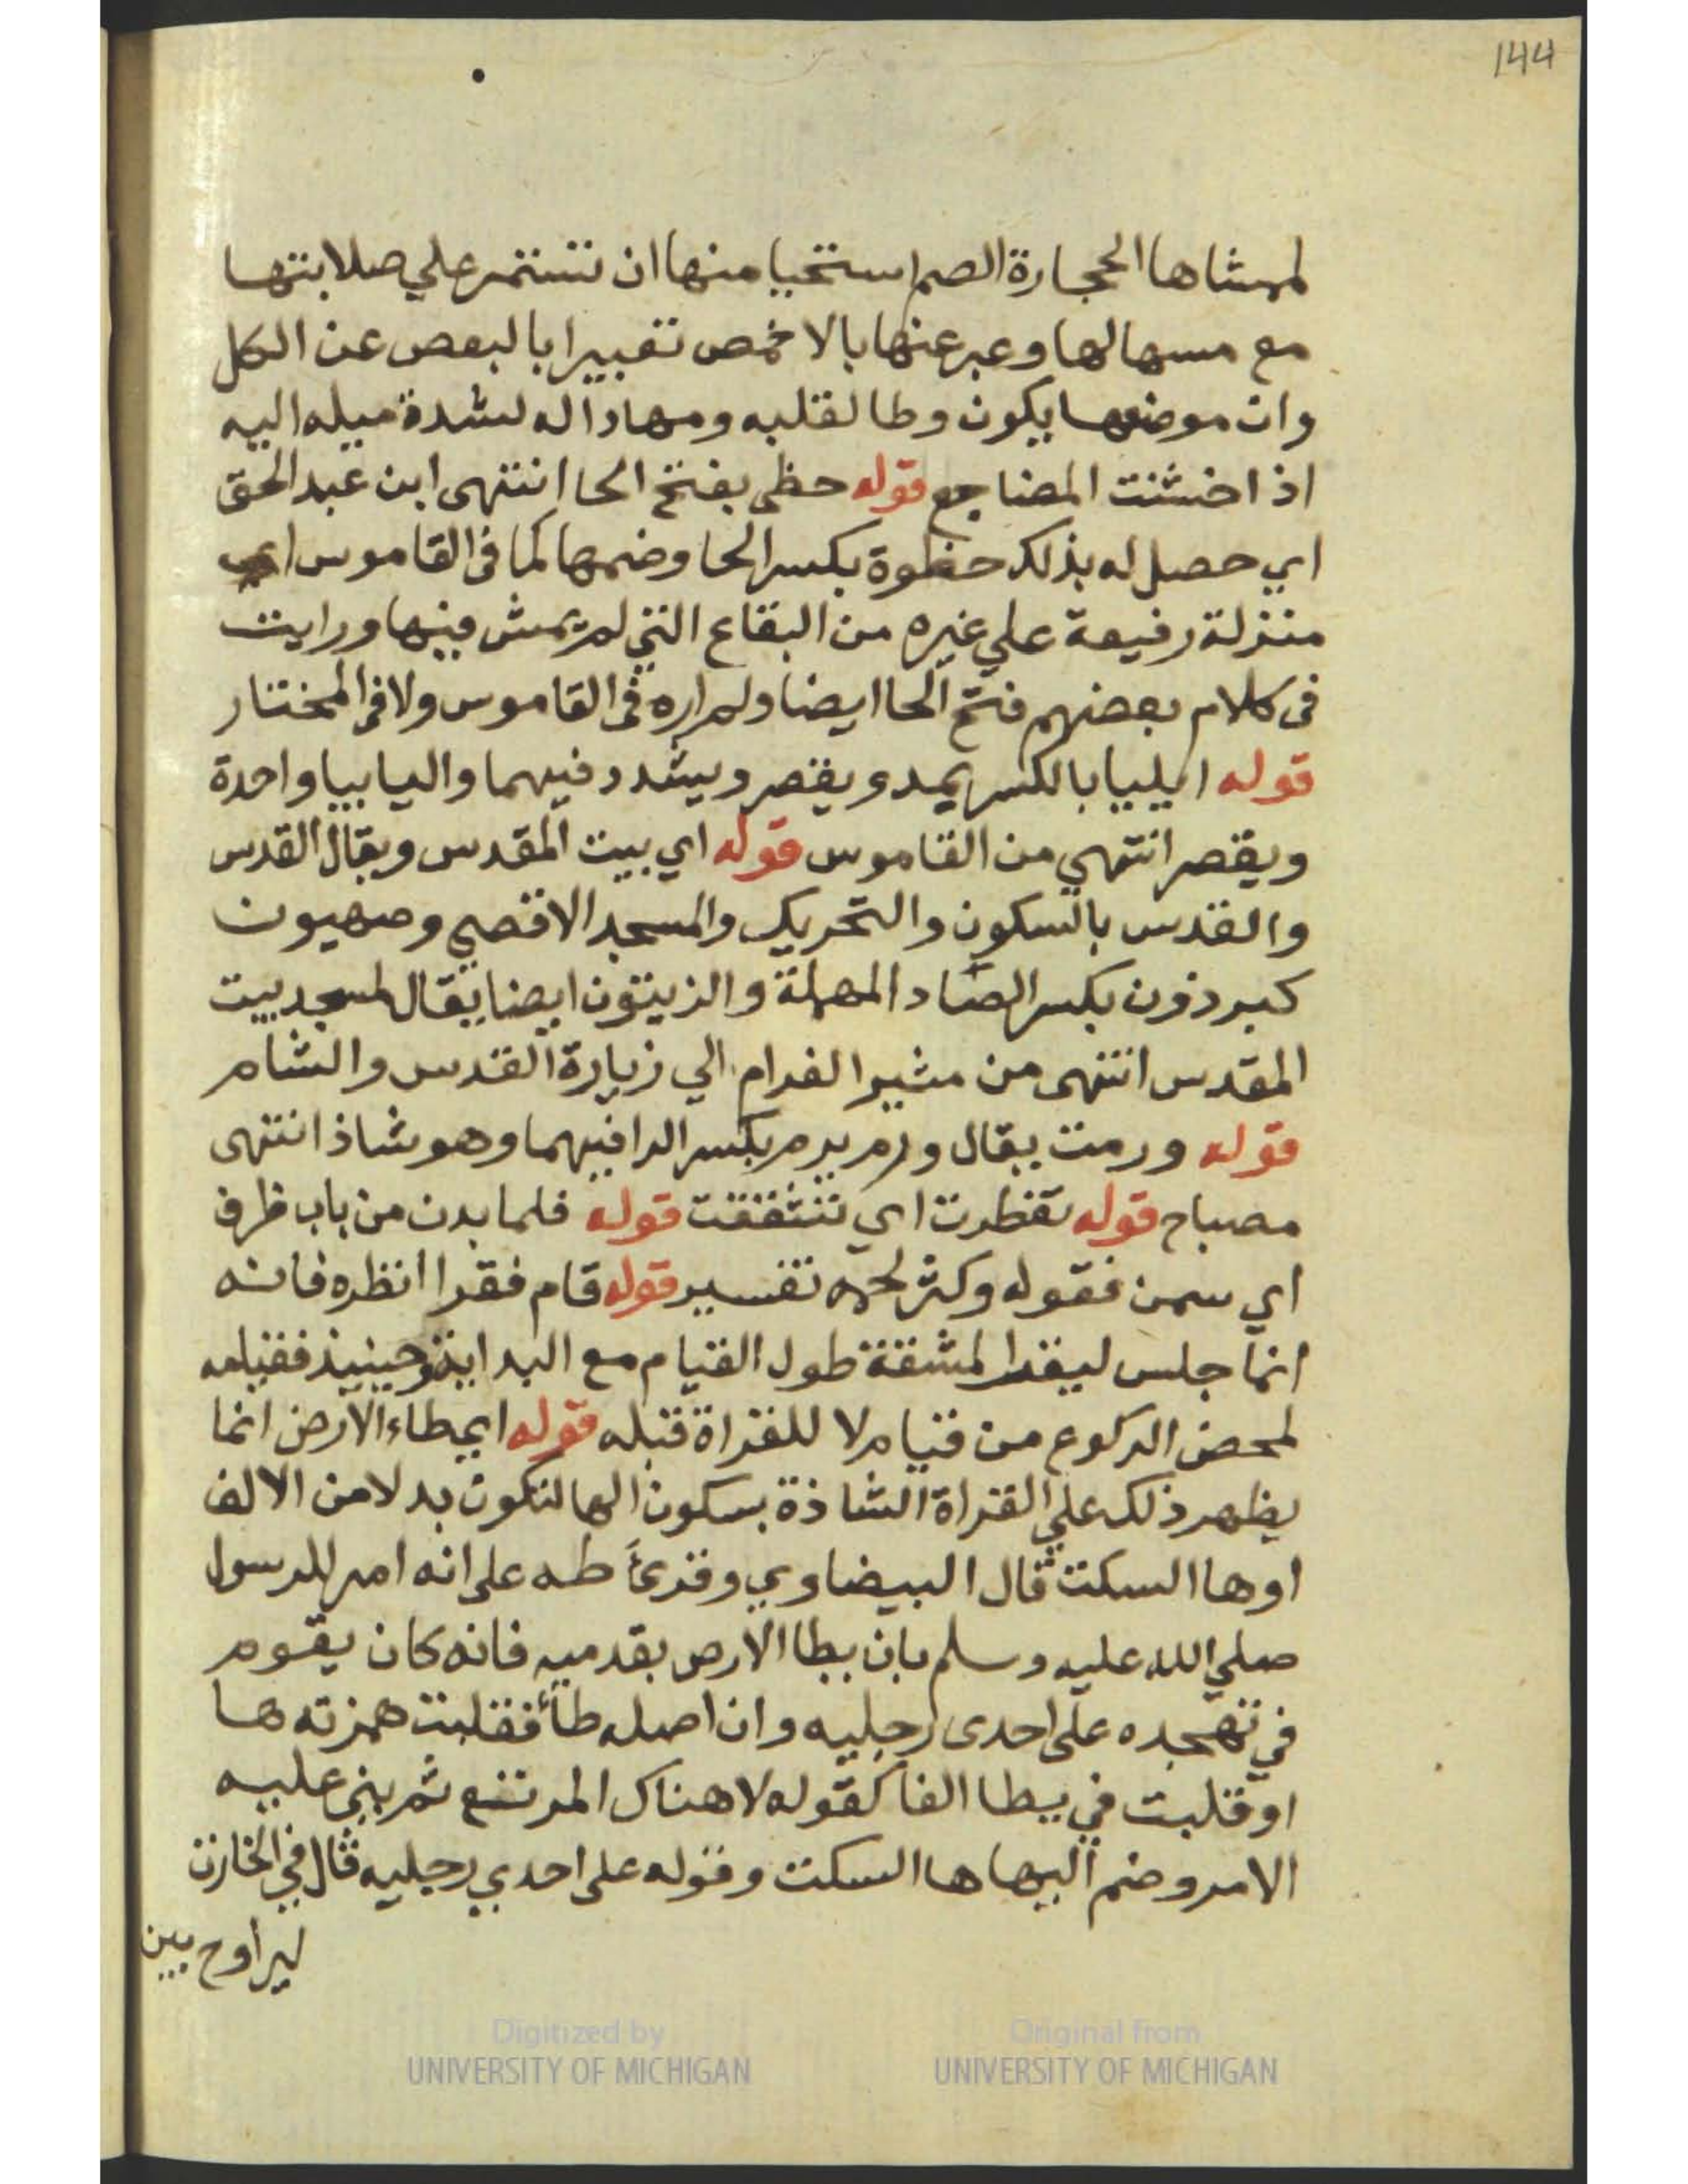 144
لمشاها الحجارة الصم استحيا منها ان تستمر علي صلابتها
مع مسها لها وعبر عنها بالاخمص تعبيرا بالبعص عن الكل
وان موضعها يكون وطا لقلبه ومهادا له لشدة ميله اليه
اذا خشنت المضاجع قوله حظي بفتح الحا انتهى ابن عبد الحق
اي حصل له بذلك حظوة بكسر الحا وضمها كما في القاموس اي
منزلة رفيعة علي غيره من البقاع التي لم يمش فيها ورايت
في كلام بعضهم فتح الحا ايضا ولم اره في القاموس ولا في المختار
قوله ايليا بالكسر يمد ويقصر ويشدد فيهما واليا بيا واحدة
ويقصر انتهي من القاموس قوله اي بيت المقدس ويقال القدس
والقدس بالسكون والتحريك والمسجد الاقصي وصهيون
كبرذون بكسر الصاد المهملة والزيتون ايضا يقال لمسجد بيت
المقدس انتهى من مثير الغرام الي زيارة القدس والشام
قوله ورمت يقال ورم يرم بكسر الرا فيهما وهو شاذ انتهى
مصباح قوله تفطرت اي تشققت قوله فلما بدن من باب ظرف
اي سمن فقوله وكثر لحمه تفسير قوله قام فقرا انظره فانه
انما جلس ليقرا لمشقة طول القيام مع البداية وحينيذ فقيامه
لمحض الركوع من قيام لا للقراة قبله قوله اي طاء الارض انما
يظهر ذلك علي القراة الشاذة بسكون الها لتكون بدلا من الالف
اوها السكت قال البيضاوي وقرئ طه على انه امر للرسول
صلي الله عليه وسلم بان يطا الارص بقدميه فانه كان يقوم
في تهجده على احدى رجليه وان اصله طأ فقلبت همزته ها
او قلبت في يطا الفا كقوله لا هناك المرتع ثم بني عليه
الامر وضم اليها ها السكت وقوله على احدي رجليه قال في الخازن
ليراوح بين
Digitized by
UNIVERSITY OF MICHIGAN
Original from
UNIVERSITY OF MICHIGAN